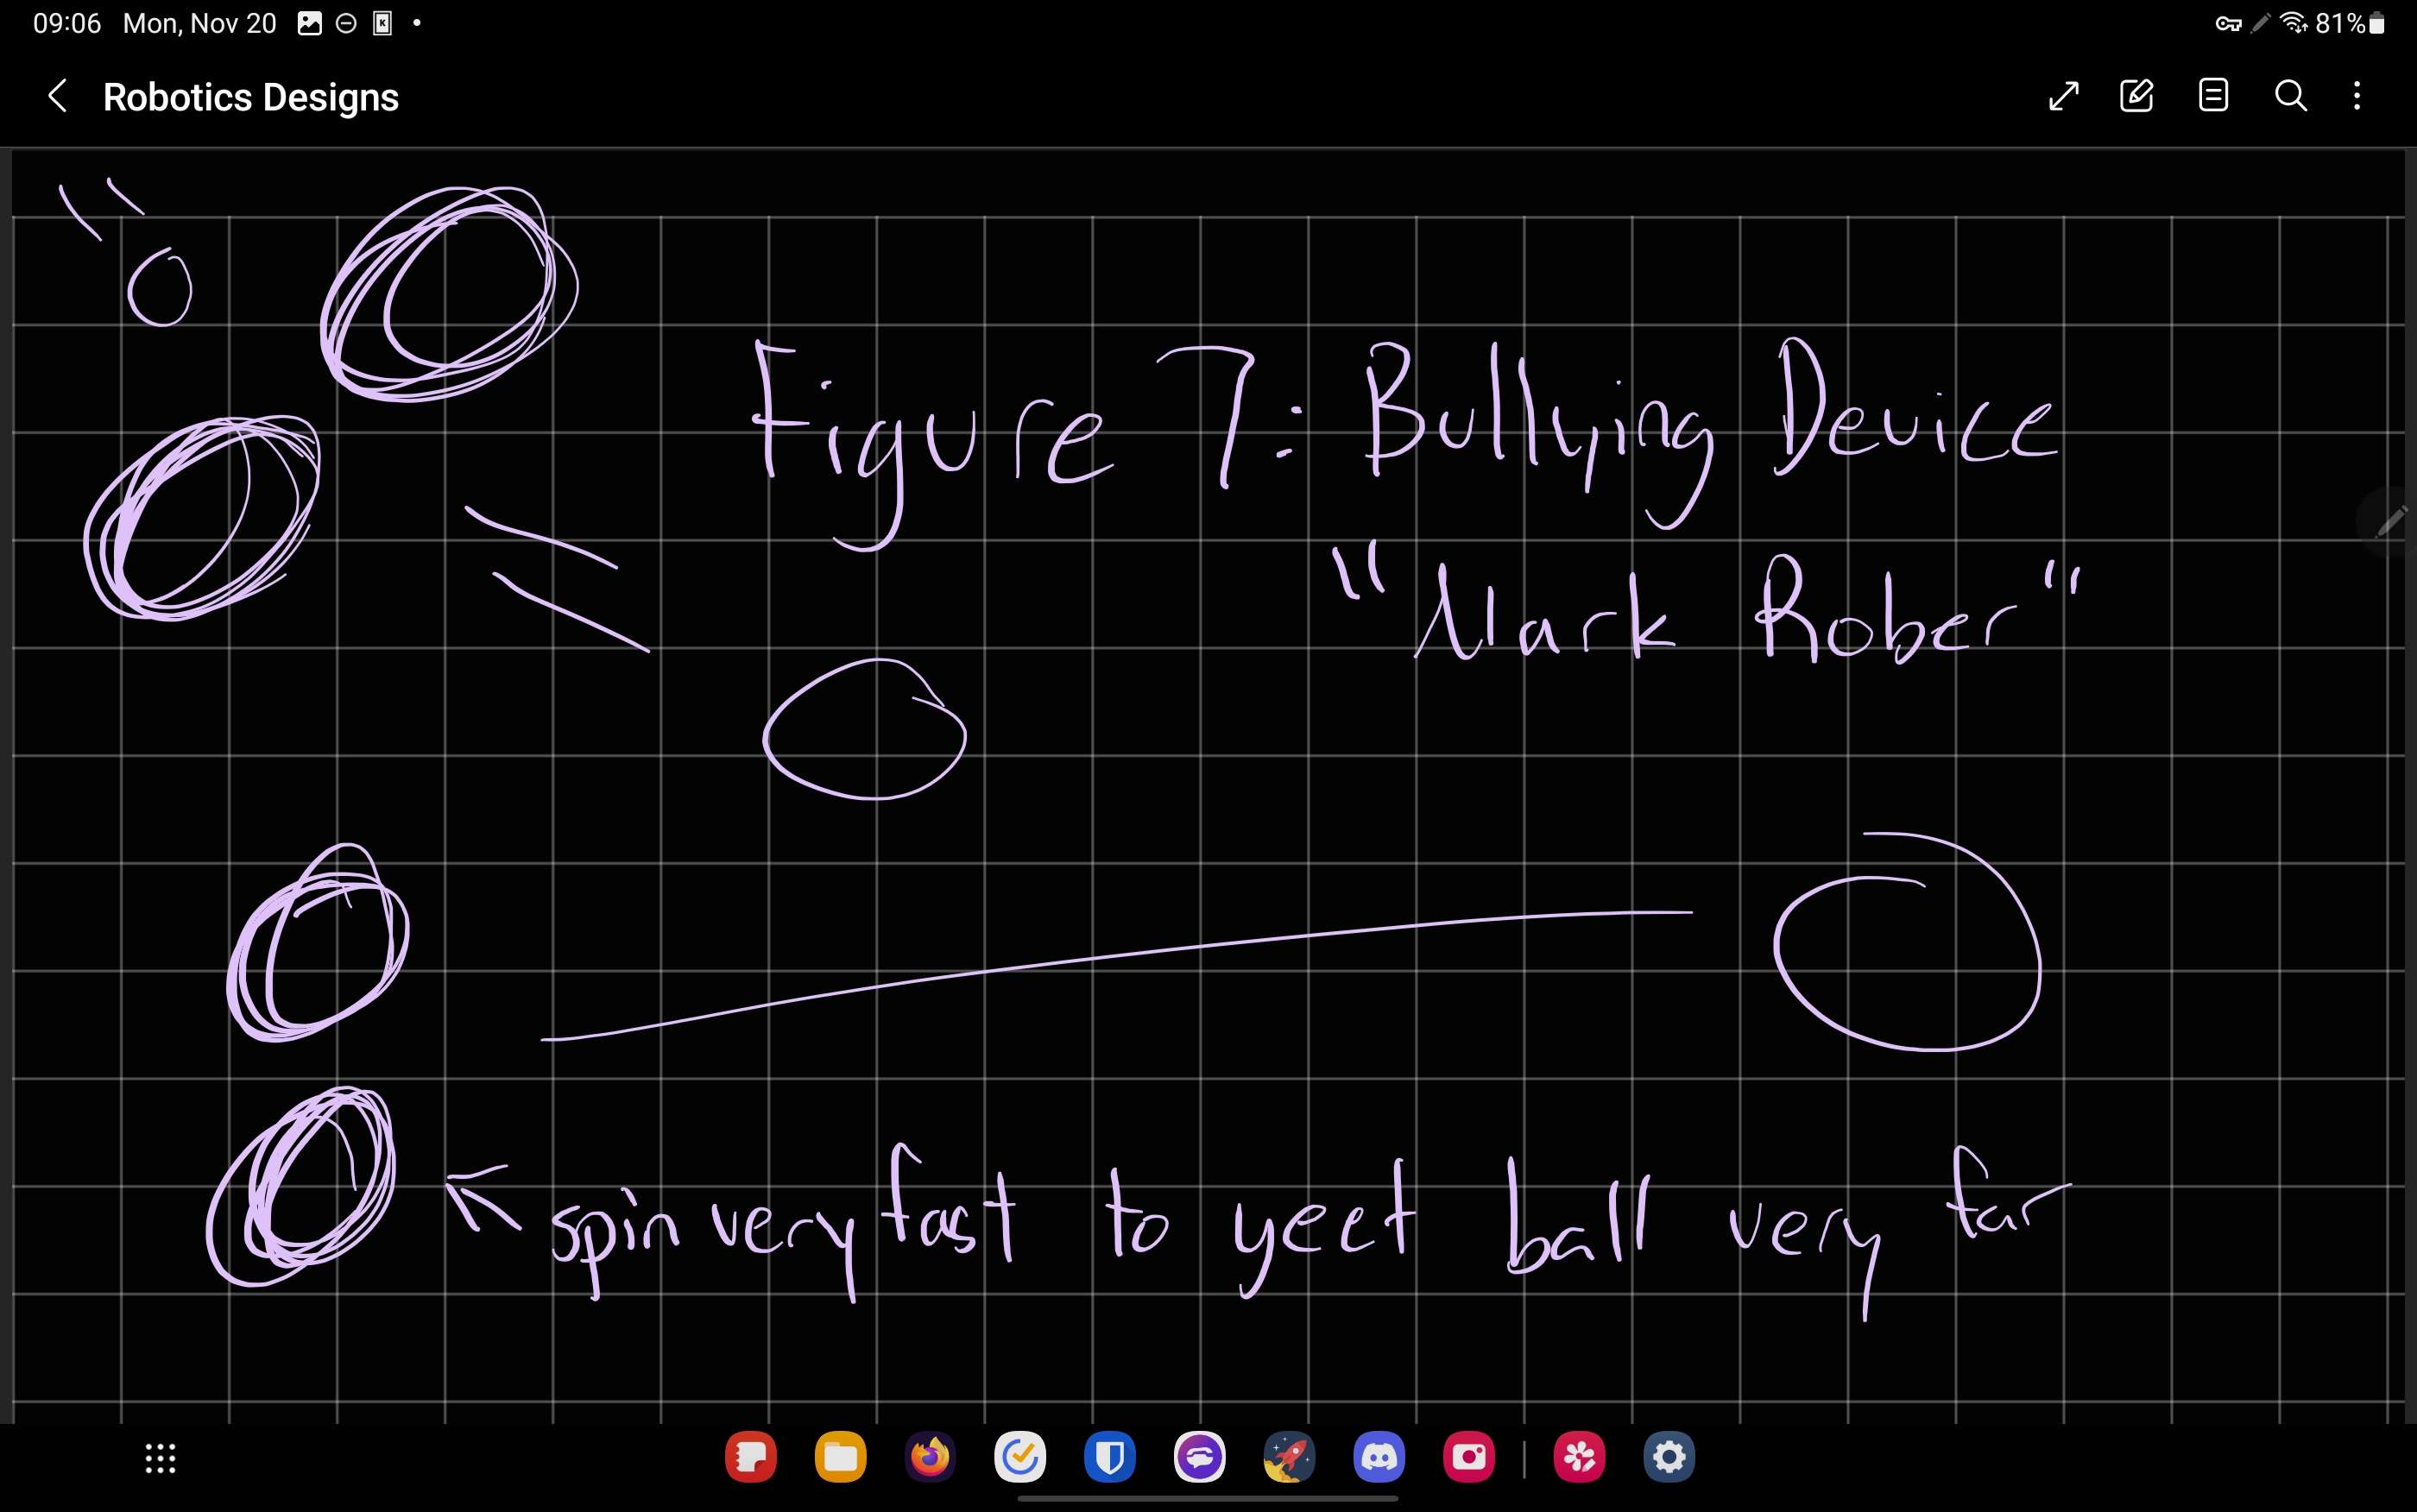 09:06 Mon, Nov 20 81%
Robotics Designs
Figure 7: Bullying Device
"Mark Rober"
spin very fast to yeet ball very far